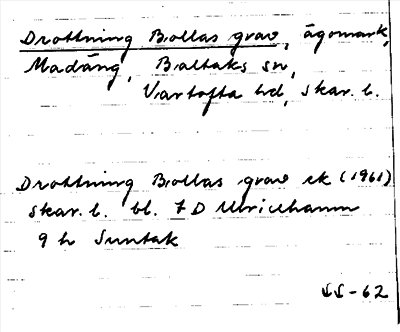 Drottning Bollas grav, ägomark,
Madäng, Baltaks sn,
Vartofta hd, skar. l.
Drottning Bollas grav ek (1961)
skar. l. bl. 7 D Ulricehamn
9 h Suntak
-62